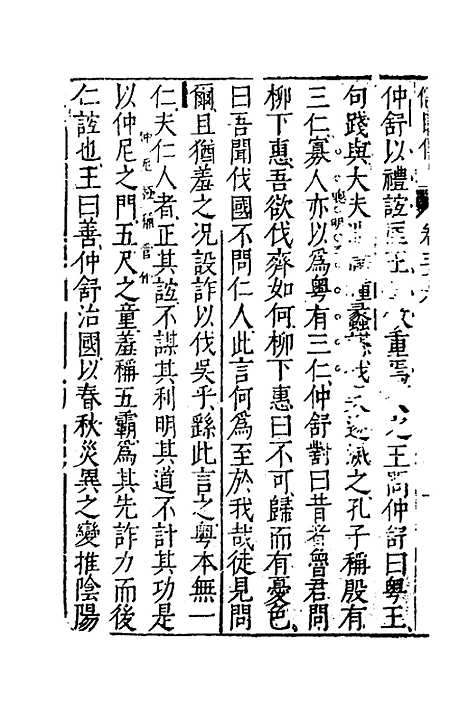 仲舒以禮誼匡正王敬重焉久之王問仲舒曰粵王
句踐與大夫泄庸種蠡謀伐吳遂滅之孔子稱殷有
三仁寡人亦以為粵有三仁仲舒對曰昔者魯君問
柳下惠吾欲伐齊如何柳下惠曰不可歸而有憂色
曰吾聞伐國不問仁人此言何為至於我哉徒見問
爾且猶羞之況設詐以伐吳乎繇此言之粵本無一
仁夫仁人者正其誼不謀其利明其道不計其功是
以仲尼之門五尺之童羞稱五霸為其先詐力而後
仁誼也王曰善仲舒治國以春秋災異之變推陰陽